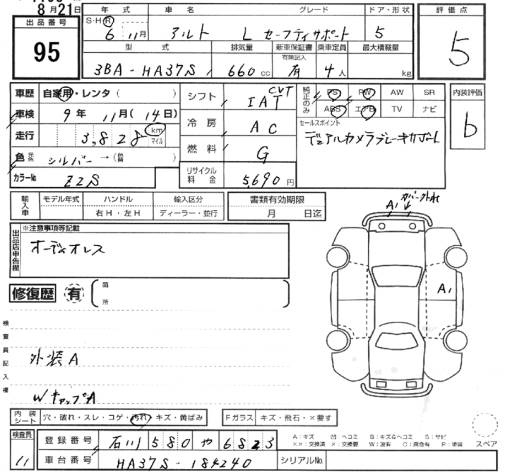 8月21日
出品番号 年式 車名 グレード ドア・形状 評価点
95
S・H・R 6年 11月 アルト L セーフティサポート 5
5
型式 排気量 新車保証書 乗車定員 最大積載量
有効記入
3BA-HA37S 660 cc 有 4人 kg
車歴 自家用・レンタ( )
車検 9年 11月(14日)
走行 3,828 km マイル
色 シルバー →( )
カラーNo Z2S
シフト CVT IAT
冷房 AC
燃料 G
リサイクル料金 5,690円
純正のみ PS PW AW SR
ABS エアB TV ナビ
セールスポイント
デュアルカメラブレーキサポート
内装評価
b
輸入車 モデル年式 ハンドル 輸入区分
右H・左H ディーラー・並行
書類有効期限
月 日迄
出品店申告欄 ※注意事項等記載
オーディオレス
修復歴 有 箇所
A1
A1
検査員記入欄
外装A
WキャップA
内装シート 穴・破れ・スレ・コゲ・汚れ・キズ・黄ばみ
Fガラス キズ・飛石・×要す
検査員 11
登録番号 石川 580 や 6823
車台番号 HA37S-184240
シリアルNo.
A:キズ
スペア